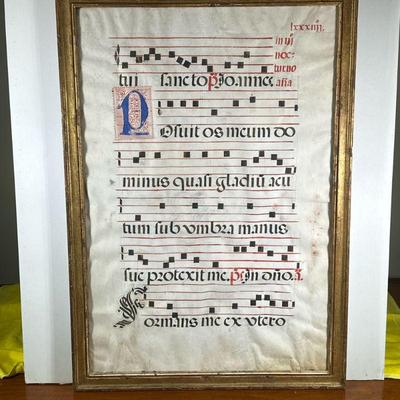 lxxxiiij.
in iij
noc
turno
aña
tui sancto Joanne
Posuit os meum do
minus quasi gladiũ acu
tum sub vmbra manus
sue protexit me. p̃s In dño. a.
Formans me ex vtero